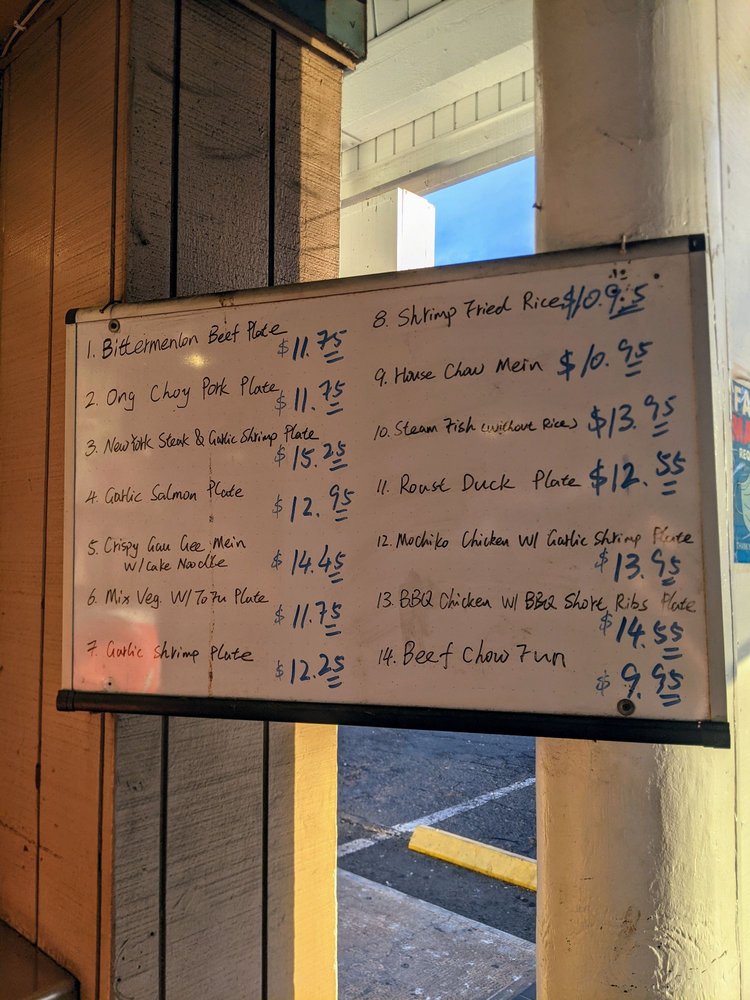 1. Bittermenlon Beef Plate $11.75
2. Ong Choy Pork Plate $11.75
3. New York Steak & Garlic Shrimp Plate
$15.25
4. Garlic Salmon Plate $12.95
5. Crispy Gau Gee Mein
w/cake Noodle $14.45
6. Mix Veg. W/ Tofu Plate $11.75
7. Garlic Shrimp Plate $12.25
8. Shrimp Fried Rice $10.95
9. House Chow Mein $10.95
10. Steam Fish (without Rice) $13.95
11. Roust Duck Plate $12.55
12. Mochiko Chicken W/ Garlic Shrimp Plate
$13.95
13. BBQ Chicken W/ BBQ Short Ribs Plate
$14.55
14. Beef Chow Fun $9.95